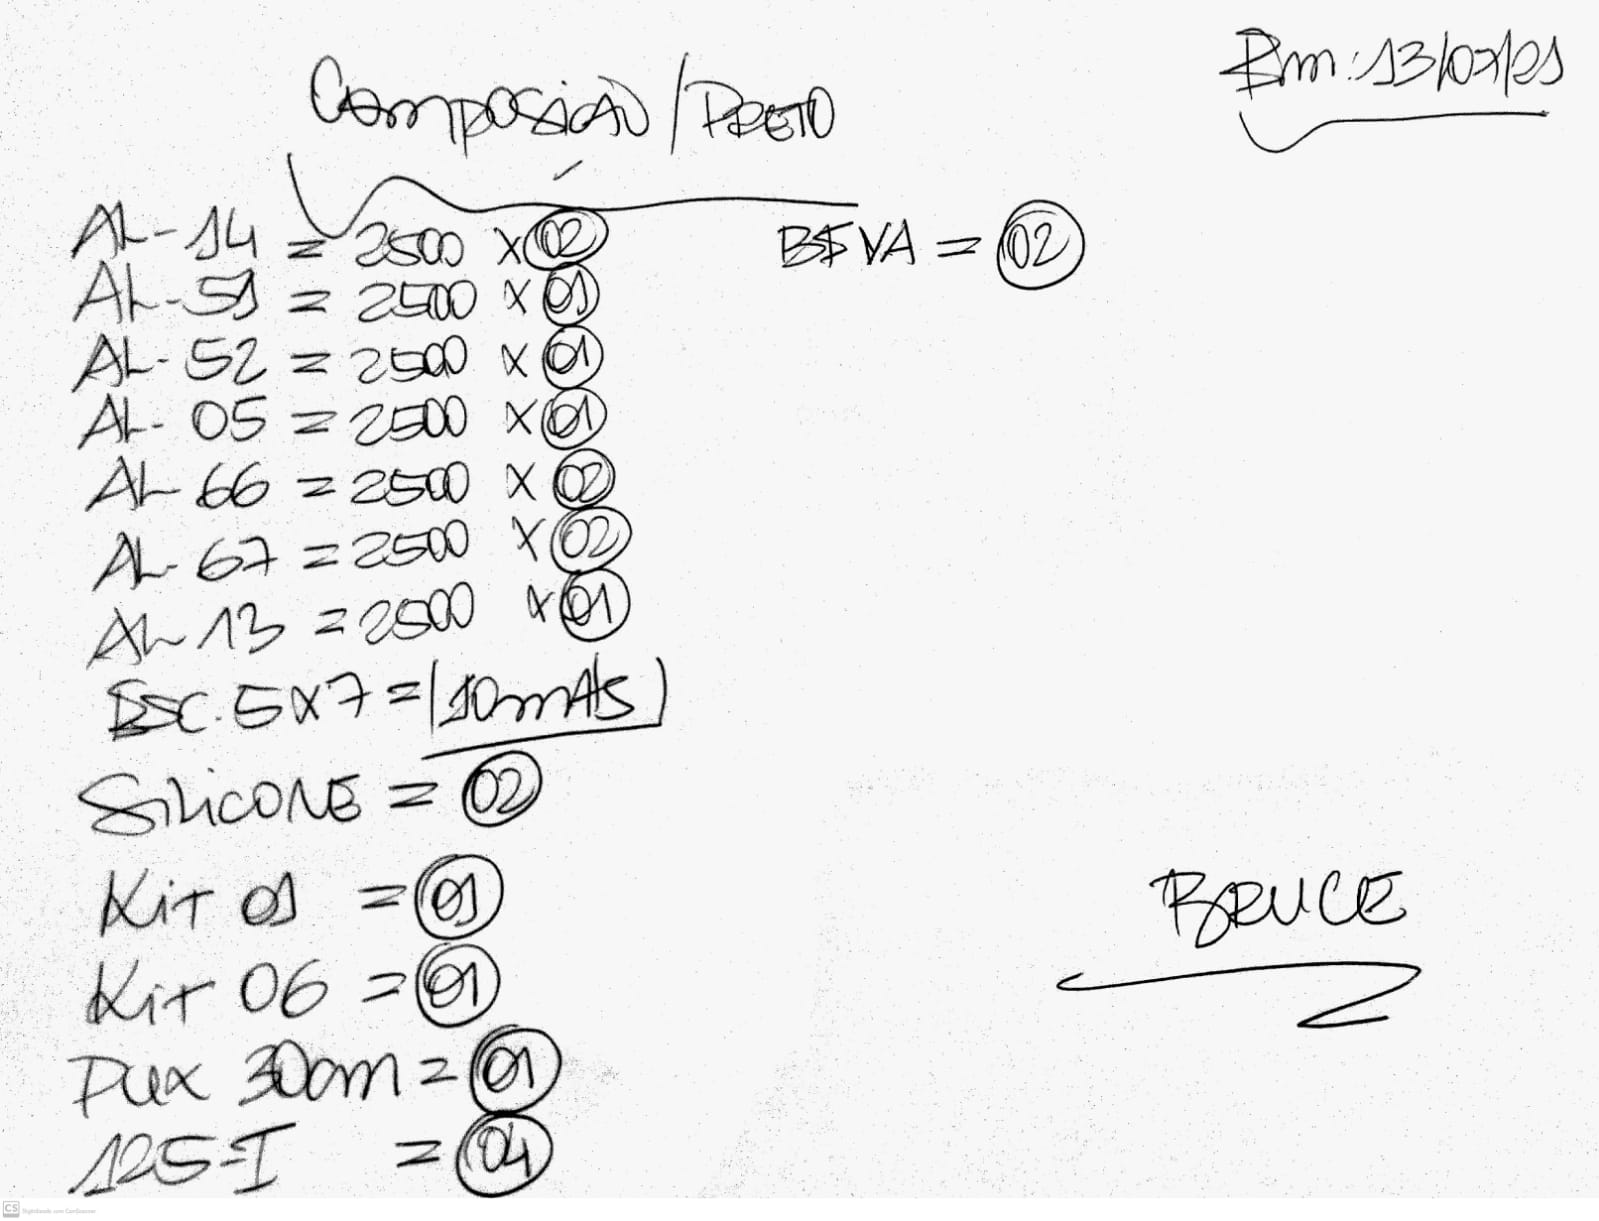 Em: 13/07/21
Composição / PRETO
AL-14 = 2500 x 02
AL-51 = 2500 x 01
AL-52 = 2500 x 01
AL-05 = 2500 x 01
AL-66 = 2500 x 02
AL-67 = 2500 x 02
AL-13 = 2500 x 01
ESC. 5x7 = 10 mts
SILICONE = 02
Kit 01 = 01
Kit 06 = 01
Pux 30cm = 01
125-I = 04
= 02
BRUCE
CS